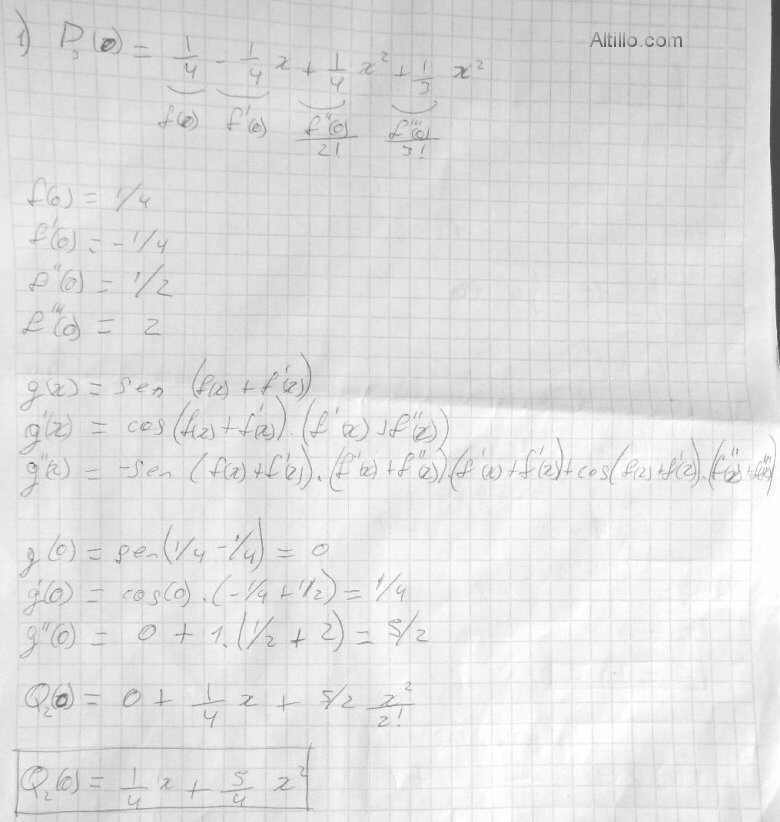 Altillo.com
1) P₃(0) = 1/4 - 1/4 x + 1/4 x² + 1/3 x²
f(0) f'(0) f''(0)/2! f'''(0)/3!
f(0) = 1/4
f'(0) = -1/4
f''(0) = 1/2
f'''(0) = 2
g(x) = sen (f(x) + f'(x))
g'(x) = cos(f(x) + f'(x)) . (f'(x) + f''(x))
g''(x) = -sen (f(x) + f'(x)) . (f'(x) + f''(x)) . (f'(x) + f'(x)) + cos(f(x) + f'(x)) . (f''(x) + f'''(x))
g(0) = sen(1/4 - 1/4) = 0
g'(0) = cos(0) . (-1/4 + 1/2) = 1/4
g''(0) = 0 + 1. (1/2 + 2) = 5/2
Q₂(0) = 0 + 1/4 x + 5/2 x²/2!
Q₂(0) = 1/4 x + 5/4 x²